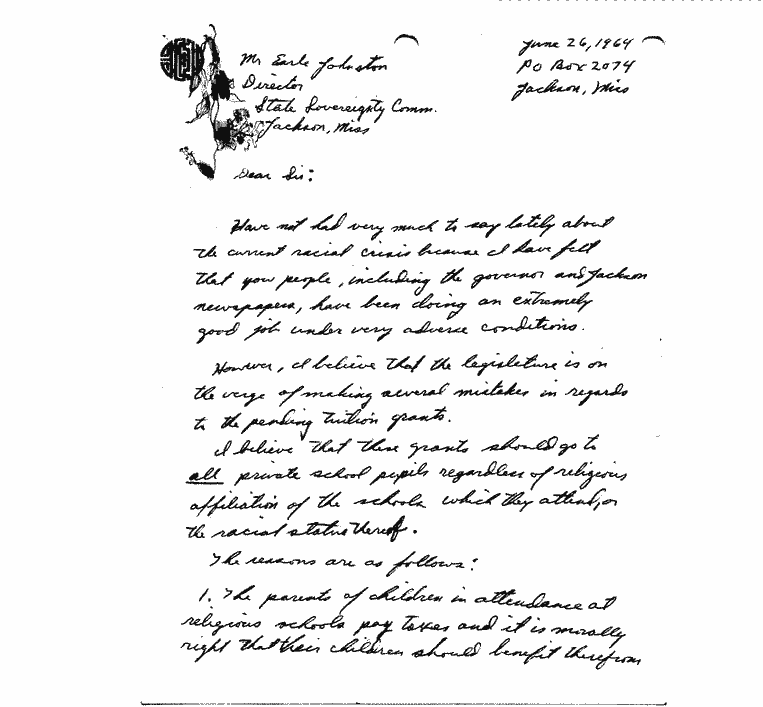 June 26, 1964
PO Box 2074
Jackson, Miss
Mr Earle Johnston
Director
State Sovereignty Comm.
Jackson, Miss
Dear Sir:
Have not had very much to say lately about
the current racial crisis because I have felt
that you people, including the governor and Jackson
newspapers, have been doing an extremely
good job under very adverse conditions.
However, I believe that the legislature is on
the verge of making several mistakes in regards
to the pending tuition grants.
I believe that these grants should go to
all private school pupils regardless of religious
affiliation of the schools which they attend, or
the racial status thereof.
The reasons are as follows:
1. The parents of children in attendance at
religious schools pay taxes and it is morally
right that their children should benefit therefrom